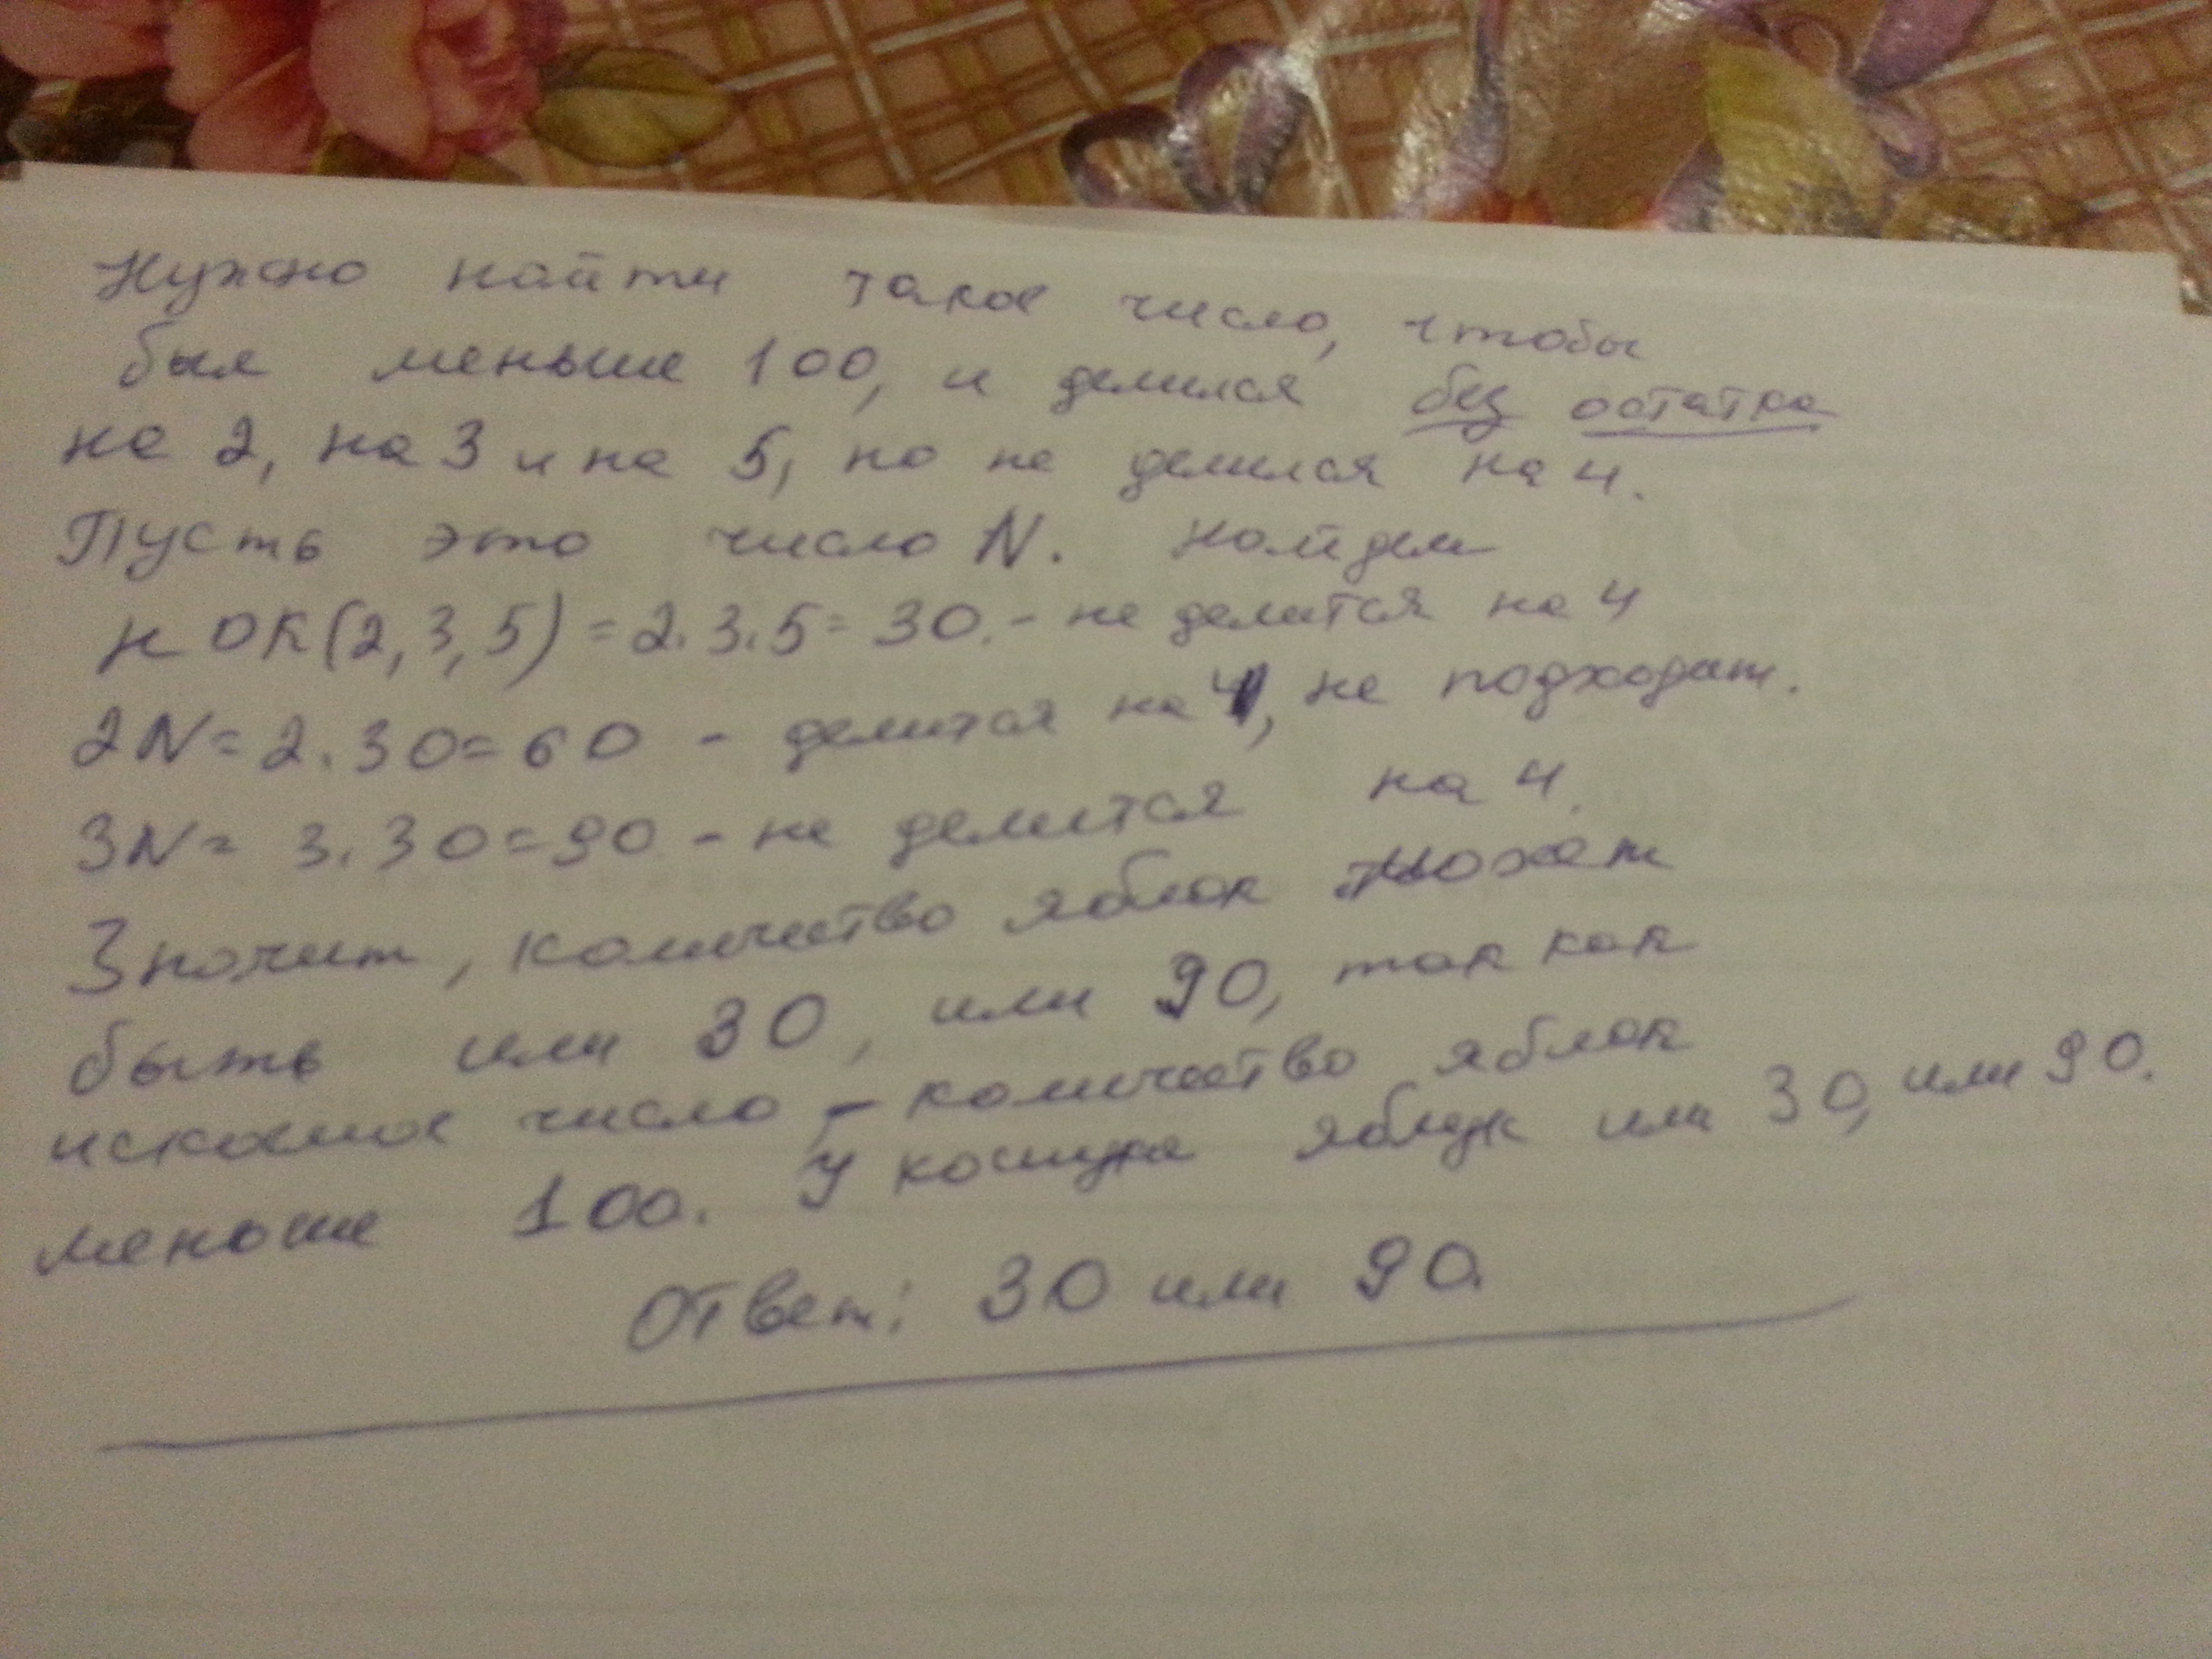 Нужно найти такое число, чтобы
был меньше 100, и делился без остатка
на 2, на 3 и на 5, но не делился на 4.
Пусть это число N. Найдем
НОК(2,3,5)=2.3.5=30.- не делится на 4
2N=2.30=60 - делится на 4, не подходит.
3N= 3.30=90 - не делится на 4.
Значит, количество яблок может
быть или 30, или 90, так как
искомое число - количество яблок
меньше 100. У яблок или 30, или 90.
Ответ: 30 или 90.